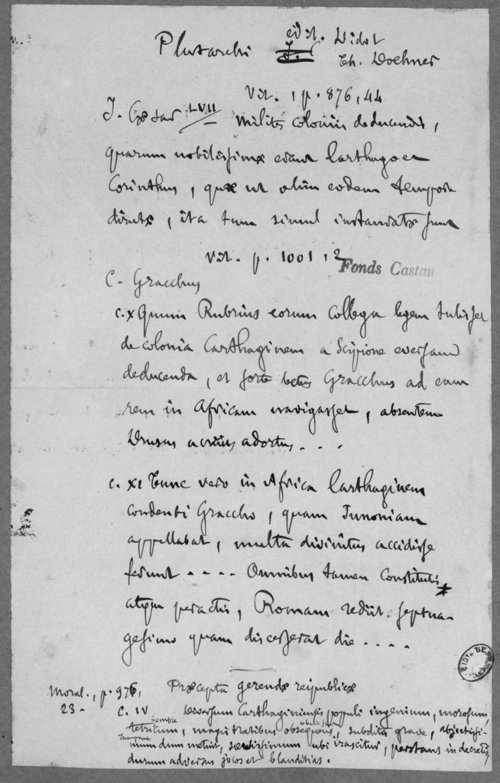 Plutarchi edit. Didot
Th. Doehner
Vit. 1 p. 876, 44
J. Cæsar LVII milites coloniis deducendis,
quarum nobilissimæ erant Carthago et
Corinthus, quæ ut olim eodem tempore
dirutæ, ita tum simul instauratæ sunt
Vit. p. 1001, 2
Fonds Castan
C. Gracchus
c. x Quum Rubrius eorum collega legem tulisset
de colonia Carthaginem a Scipione eversam
deducenda, et forte lectus Gracchus ad eam
rem in Africam navigasset, absentem
Drusus acrius adortus . . .
c. XI Tunc vero in Africa Carthaginem
condenti Graccho, quam Junoniam
appellabat, multa divinitus accidisse
ferunt . . . . Omnibus tamen constitutis
atque peractis, Romam rediit septua-
gesimo quam discesserat die . . . .
Præcepta gerendæ reipublicæ
Moral., p. 976,
23 - c. IV Diversum Carthaginiensis populi ingenium, morosum,
sombre
tetricum, magistratibus obsequiosum, subditis grave, abjectissi-
mum dum metuit, ubi irascitur, perstans in decretis
durum adversus jocos et blanditias.